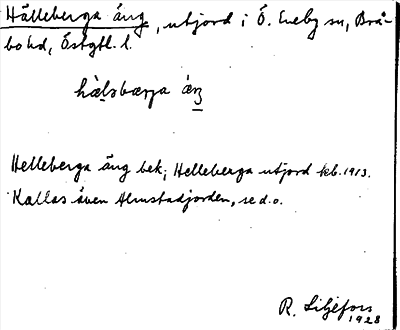 Hälleberga äng, utjord i Ö. Eneby sn, Brå-
bo hd, Östgtl. l.
hàlsbærja áŋ
Helleberga äng bek; Helleberga utjord kb. 1913.
Kallas även Almstadjorden, se d.o.
R. Liljefors
1928